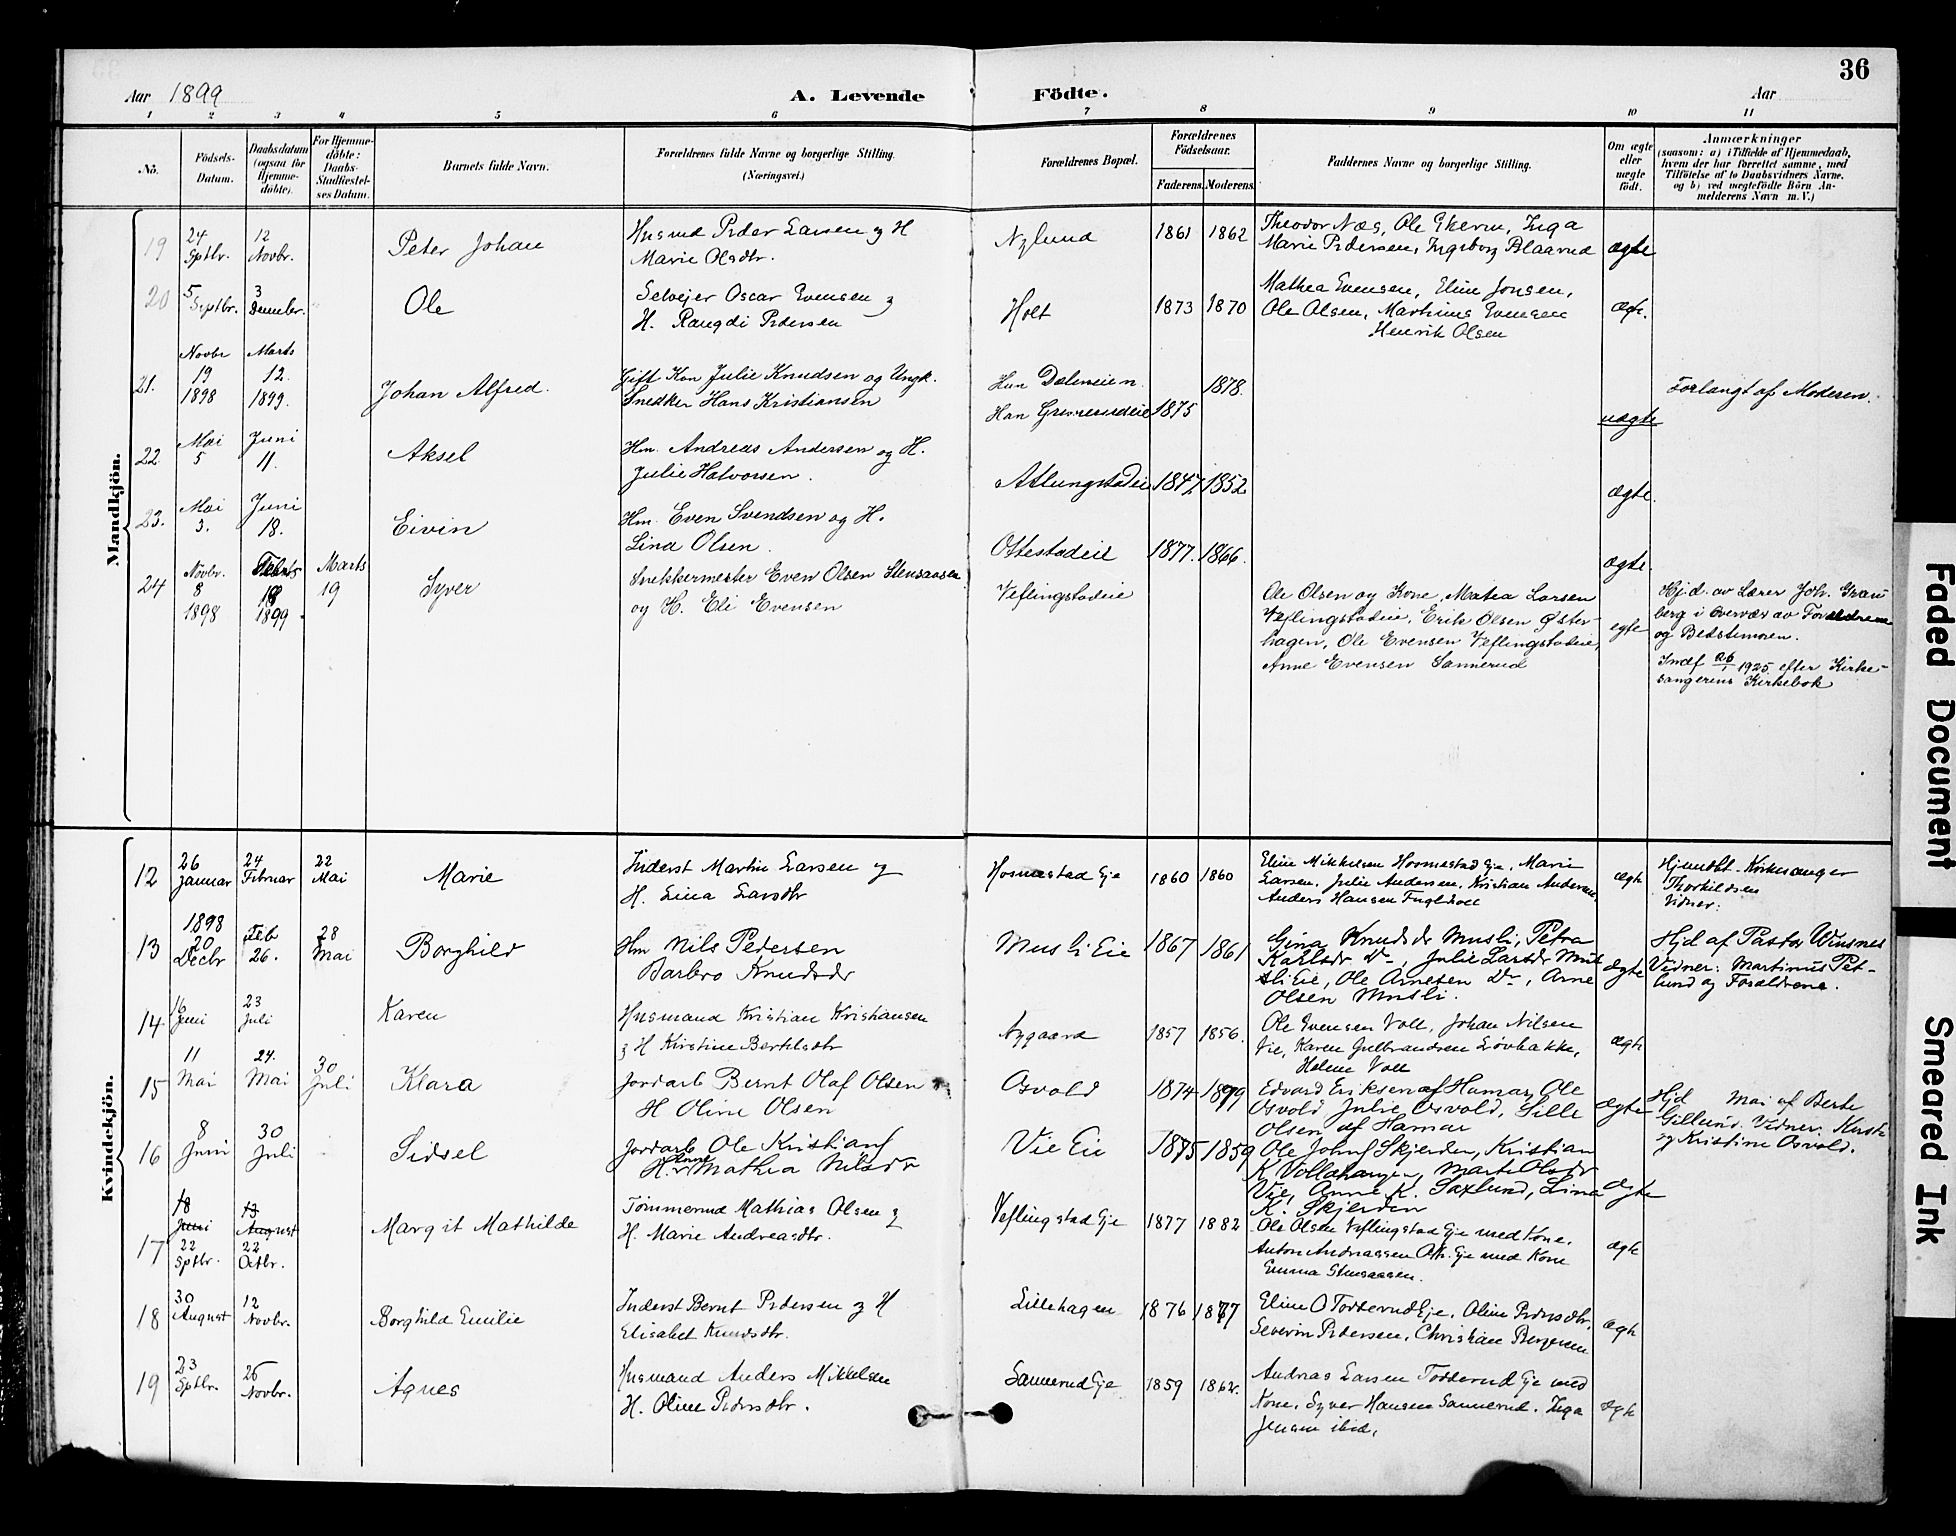 36
Aar 1899
A. Levende Födte.
Aar
1 2 3 4 5 6 7 8 9 10 11
No.
Födsels-
Datum.
Daabsdatum
(ogsaa for
Hjemme-
döbte).
For Hjemme-
döbte:
Daabs-
Stadfæstel-
ses Datum.
Barnets fulde Navn.
Forældrenes fulde Navne og borgerlige Stilling.
(Næringsvei.)
Forældrenes Bopæl.
Forældrenes
Födselsaar.
Faderens. Moderens.
Faddernes Navne og borgerlige Stilling.
Om ægte
eller
uægte
födt.
Anmærkninger
(saasom: a) i Tilfælde af Hjemmedaab,
hvem der har forrettet samme, med
Tilföielse af to Daabsvidners Navne.
og b) ved uægtefödte Börn An-
melderens Navn m. V.)
Mandkjön.
19
24
Sptbr.
12
Novbr.
Peter Johan
Husmd Peder Larsen og H
Marie Olsdtr.
Nylund
1861 1862
Theodor Næs, Ole Ekern, Inga
Marie Pedersen, Ingeborg Blaarud
ægte
20
5
Septbr.
3
Decembr.
Ole
Selvejer Oscar Evensen og
H. Rangdi Pedersen
Holt
1873 1870
Mathea Evensen, Eline Jonsen,
Ole Olsen, Marthinus Evensen
Henrik Olsen
ægte.
21.
Novbr
19
1898
Marts
12.
1899.
Johan Alfred.
Gift Kon Julie Knudsen og Ungk.
Snedker Hans Kristiansen
Hun
Han
1878.
1875
uægte
Forlangt af Moderen.
22.
Mai
5
Juni
11.
Aksel
Hm. Andreas Andersen og H.
Julie Halvorsen.
Atlungstadeie
1847 1852
ægte.
23.
Mai
3.
Juni
18.
Eivin
Hm. Even Svendsen og H.
Lina Olsen.
Ottestadeie
1877. 1866.
ægte.
24
Novbr.
8
1898
18
1899.
Marts
19
Syver
Snekkermester Even Olsen Stensaasen
og H. Eli Evensen
Veflingstadeie
Ole Olsen og Kone, Matea Larsen
Veflingstadeie, Erik Olsen Øster-
hagen, Ole Evensen Veflingstadeie,
Anne Evensen Sannerud
egte
Hj.d. av Lærer Joh. Gran-
berg i Overvær av Forældrene
og Bedstemoren.
Indf 26/1 1925 efter Kirke-
sangerens Kirkebok
Kvindekjön.
12
26
Januar
24
Februar
22
Mai
Marie
Inderst Martin Larsen og
H. Lina Larsdtr
Hosmestad Eje
1860 1860
Eline Mikkelsen Hosmestad Eje, Marie
Larsen, Julie Andersen, Kristian Andersen,
Anders Hansen
ægte
Hjemdbt. Kirkesanger
Thorkildsen
Vidner:
13
1898
20
Decbr
Feb
26.
28
Mai
Borghild
Hm Nils Pedersen
Barbro Knudsdr
Musli Eie
1867 1861
Gina Knudsdr Musli, Petra
Karlsdr Do, Julie Larsdr Mus-
li Eie, Ole Arnesen Do, Arne
Olsen Musli.
Ægte
Hjd af Pastor Winsnes
Vidner: Martinus Pet-
lund og Forældrene.
14
16
Juni
23
Juli
Karen
Husmand Kristian Kristiansen
og H Kirstine Bertelsdtr
Nygaard
1857 1856.
Ole Evensen Voll, Johan Nilsen
Vie, Karen Gulbrandsen Løvbakke,
Helene Voll
ægte
15
11
Mai
24.
Mai
30
Juli
Klara
Jordarb Bernt Olaf Olsen
H Oline Olsen
Osvold
1874 1879
Edvard Eriksen af Hamar, Ole
Osvold Julie Osvold, Sille
Olsen af Hamar
Ægte
Hjd Mai af Berte
Gillund. Vidner:
og Kristine Osvold.
16
8
Juni
30
Juli
Sidsel
Jordarb Ole Kristians
H. Anne Mathea Nilsdr
Vie Ei
1875 1859
Ole Johns Skjerden, Kristian
K. Vollahaugen, Marte Olsdr
Vie, Anne K. Saxlund, Lina
K. Skjerden
Ægte
17
18
Juni
22
Sptbr.
13
August
22
Octbr.
Margit Mathilde
Tømmermd Mathias Olsen og
H. Marie Andreasdtr.
Veflingstad Eje
1877 1882
Ole Olsen Veflingstad Eje med Kone,
Anton Andreassen Eje med Kone
Emma Stensaasen.
ægte
18
30
August
12
Novbr.
Borghild Emilie
Inderst Bernt Pedersen og H
Elisabet Knudsdtr.
Lillehagen
1876 1877
Eline O Totterud Eje, Oline Pedersdtr,
Severin Pedersen, Christian Bergersen
ægte
19
23
Sptbr.
26
Novbr.
Agnes
Husmand Anders Mikkelsen
H. Oline Pedersdtr.
Sannerud Eje
1859 1862.
Andreas Larsen Totterud Eje med
Kone, Syver Hansen Sannerud, Inga
Jensen ibid.
ægte
Faded Document
Smeared Ink